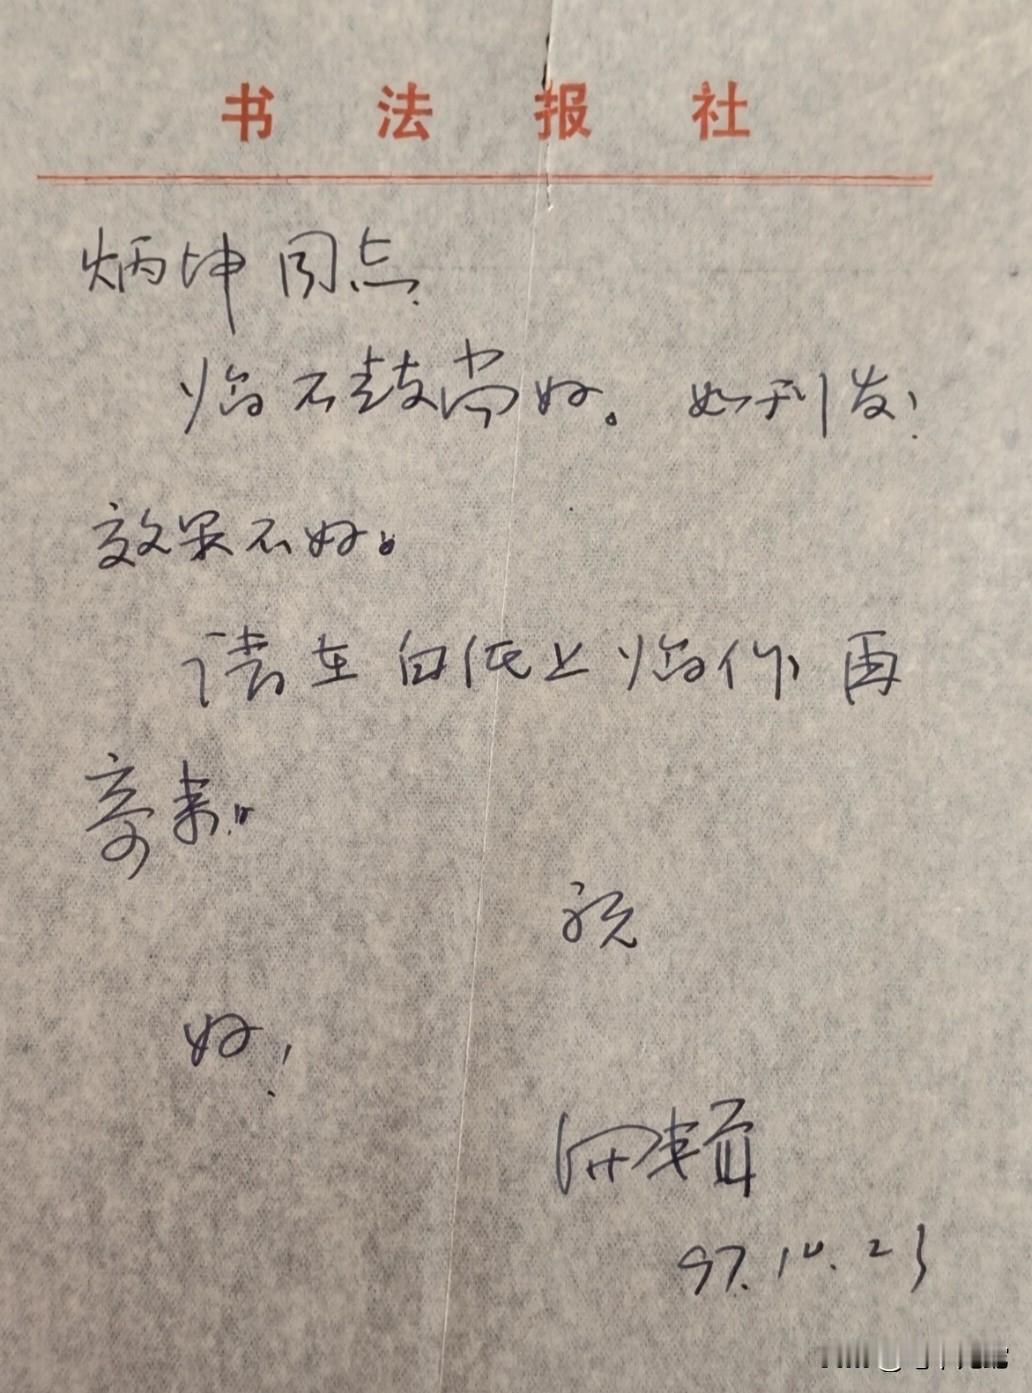 书法报社
炳坤同志
临石鼓尚好。如刊发,
效果不好。
请在白纸上临作再
寄来。
祝
好!
编辑
97.10.23